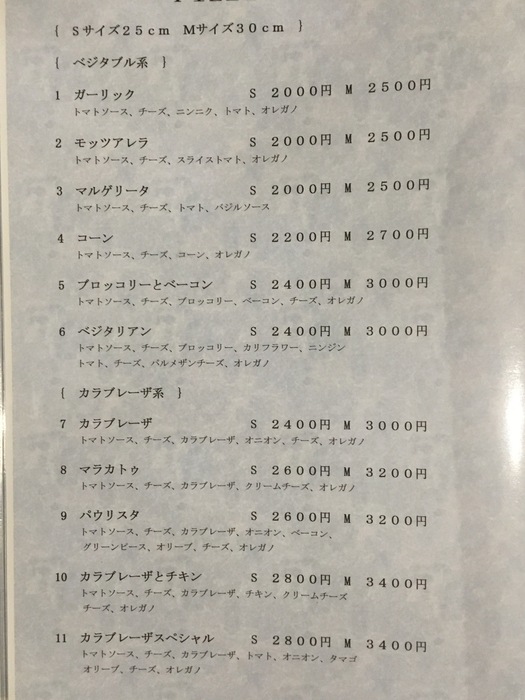 { Sサイズ25cm Mサイズ30cm }
{ ベジタブル系 }
1 ガーリック S 2000円 M 2500円
トマトソース、チーズ、ニンニク、トマト、オレガノ
2 モッツアレラ S 2000円 M 2500円
トマトソース、チーズ、スライストマト、オレガノ
3 マルゲリータ S 2000円 M 2500円
トマトソース、チーズ、トマト、バジルソース
4 コーン S 2200円 M 2700円
トマトソース、チーズ、コーン、オレガノ
5 ブロッコリーとベーコン S 2400円 M 3000円
トマトソース、チーズ、ブロッコリー、ベーコン、チーズ、オレガノ
6 ベジタリアン S 2400円 M 3000円
トマトソース、チーズ、ブロッコリー、カリフラワー、ニンジン
トマト、チーズ、パルメザンチーズ、オレガノ
{ カラブレーザ系 }
7 カラブレーザ S 2400円 M 3000円
トマトソース、チーズ、カラブレーザ、オニオン、チーズ、オレガノ
8 マラカトゥ S 2600円 M 3200円
トマトソース、チーズ、カラブレーザ、クリームチーズ、オレガノ
9 パウリスタ S 2600円 M 3200円
トマトソース、チーズ、カラブレーザ、オニオン、ベーコン、
グリーンピース、オリーブ、チーズ、オレガノ
10 カラブレーザとチキン S 2800円 M 3400円
トマトソース、チーズ、カラブレーザ、チキン、クリームチーズ
チーズ、オレガノ
11 カラブレーザスペシャル S 2800円 M 3400円
トマトソース、チーズ、カラブレーザ、トマト、オニオン、タマゴ
オリーブ、チーズ、オレガノ